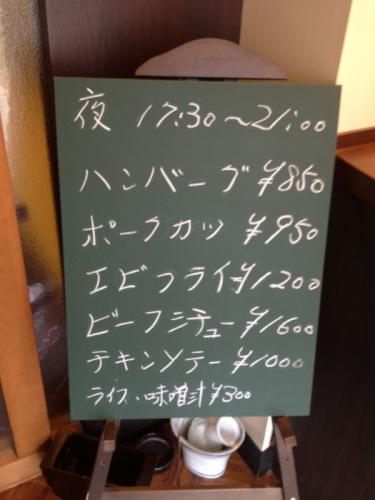 夜 17:30〜21:00
ハンバーグ ¥850
ポークカツ ¥950
エビフライ ¥1200
ビーフシチュー ¥1600
チキンソテー ¥1000
ライス・味噌汁 ¥300